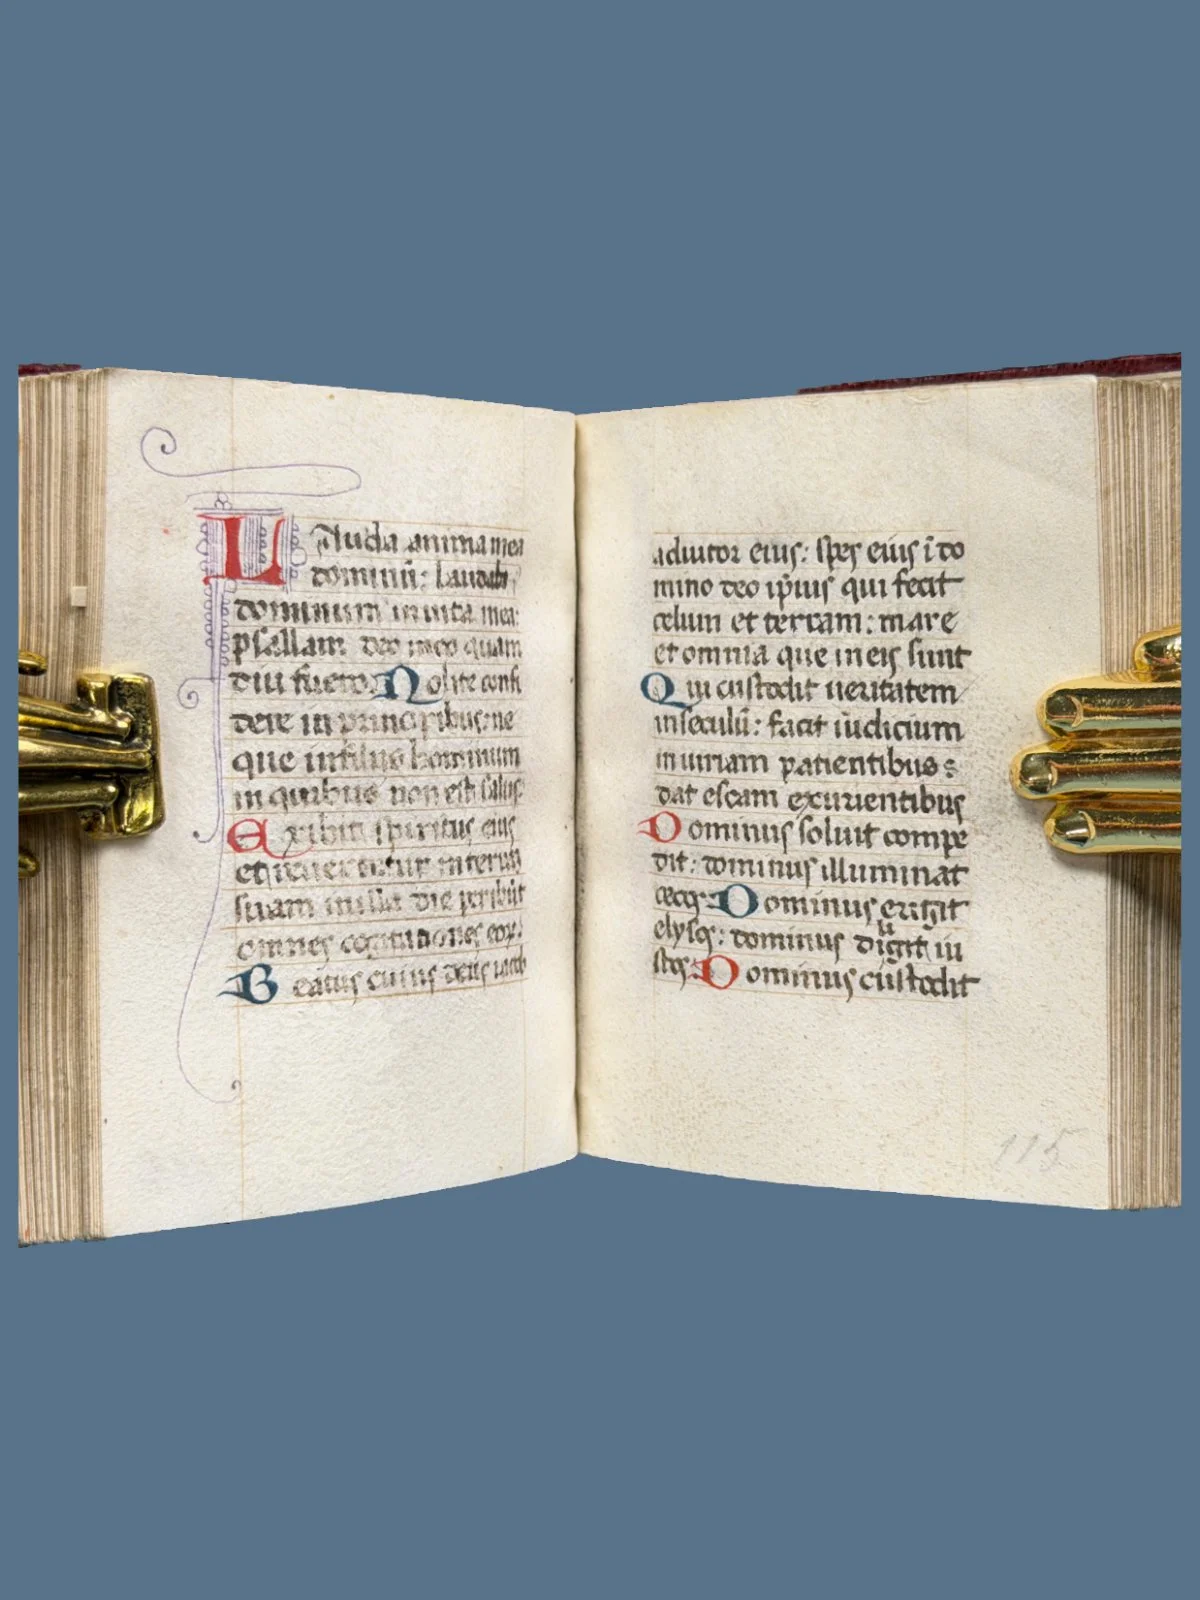 Lauda anima mea
dominũ: laudabo
dominum in vita mea:
psallam deo meo quam
diu fuero. Nolite confi
dere in principibus: ne
que in filiis hominum
in quibus non est salus.
Exibit spiritus eius
et revertetur in terram
suam in illa die peribũt
omnes cogitationes eoꝝ.
Beatus cuius deus iacob
adiutor eius: spes eius ĩ do
mino deo ip̃ius qui fecit
celum et terram: mare
et omnia que in eis sunt
Qui custodit ueritatem
in seculũ: facit iudicium
iniuriam patientibus:
dat escam exurientibus
Dominus soluit compe
dit: dominus illuminat
cecos. Dominus erigit
elysos: dominus diligit iu
stos. Dominus custodit
115